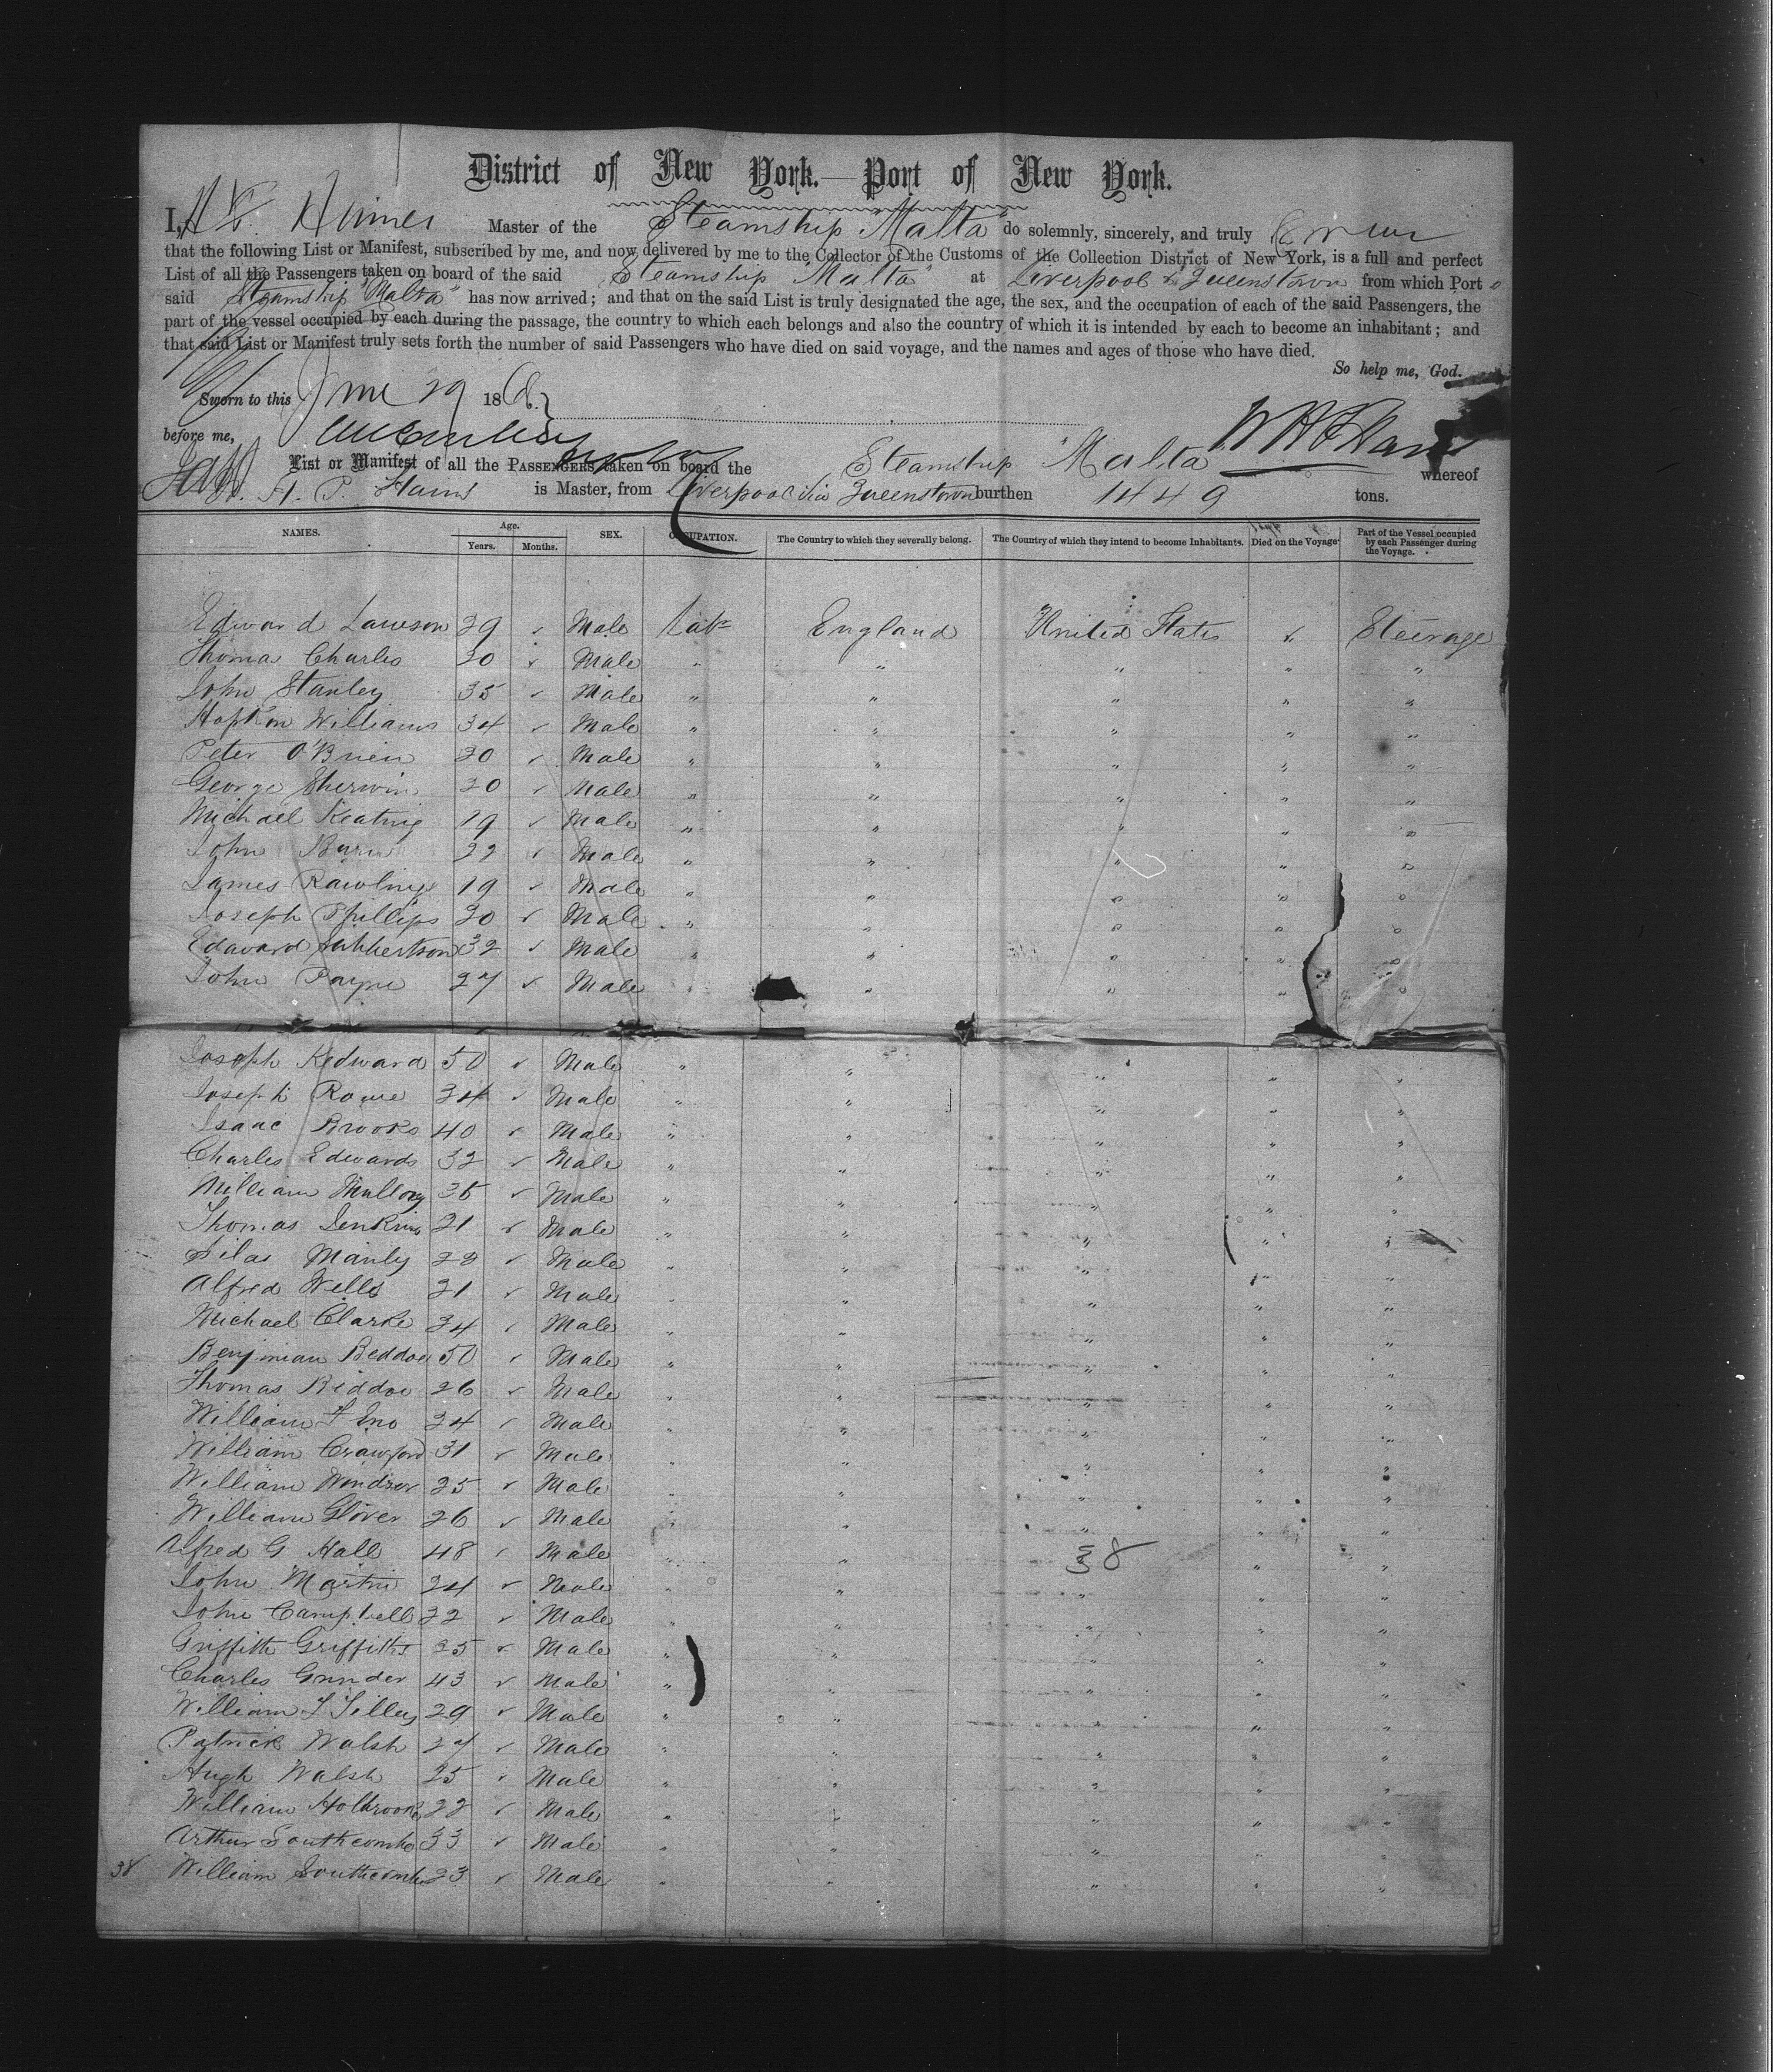 District of New York.—Port of New York.
I, Master of the Steamship "Malta" do solemnly, sincerely, and truly
that the following List or Manifest, subscribed by me, and now delivered by me to the Collector of the Customs of the Collection District of New York, is a full and perfect
List of all the Passengers taken on board of the said Steamship "Malta" at Liverpool & Queenstown from which Port
said Steamship "Malta" has now arrived; and that on the said List is truly designated the age, the sex, and the occupation of each of the said Passengers, the
part of the vessel occupied by each during the passage, the country to which each belongs and also the country of which it is intended by each to become an inhabitant; and
that said List or Manifest truly sets forth the number of said Passengers who have died on said voyage, and the names and ages of those who have died.
So help me, God.
Sworn to this June 29 186
before me,
List or Manifest of all the PASSENGERS taken on board the Steamship "Malta" whereof
is Master, from Liverpool via Queenstown burthen 1449 tons.
NAMES. Age. Years. Months. SEX. OCCUPATION. The Country to which they severally belong. The Country of which they intend to become Inhabitants. Died on the Voyage Part of the Vessel occupied by each Passenger during the Voyage.
Edward Lawson 29 Male Lab England United States Steerage
Thomas Charles 30 Male " " " " "
John Stanley 35 Male " " " " "
Hopkin Williams 34 Male " " " " "
Peter O'Brien 20 Male " " " " "
George Sherwin 30 Male " " " " "
Michael Keating 19 Male " " " " "
John 22 Male " " " " "
James Rawlings 19 Male " " " " "
Joseph Phillips 20 Male " " " " "
Edward 32 Male " " " " "
John Payne 27 Male " " " "
Joseph Kedward 50 Male " " " " "
Joseph Rowe 34 Male " " " " "
Isaac Brooks 40 Male " " " " "
Charles Edwards 32 Male " " " " "
William 35 Male " " " " "
Thomas Jenkins 21 Male " " " " "
Silas Manly 28 Male " " " " "
Alfred Wells 21 Male " " " " "
Michael Clarke 34 Male " " " " "
Benjiman Beddoe 50 Male " " " " "
Thomas Biddoe 26 Male " " " " "
William 24 Male " " " " "
William Crawford 31 Male " " " " "
William Windsor 25 Male " " " " "
William Glover 26 Male " " " " "
Alfred G Hall 48 Male " " " " "
38
John Martin 24 Male " " " " "
John Campbell 22 Male " " " " "
Griffith Griffiths 25 Male " " " " "
Charles 43 Male " " " " "
William 29 Male " " " " "
Patrick Walsh 27 Male " " " " "
Hugh Walsh 25 Male " " " " "
William Holbrook 22 Male " " " " "
Arthur Southcombe 33 Male " " " " "
38 William Southcombe 23 Male " " " " "